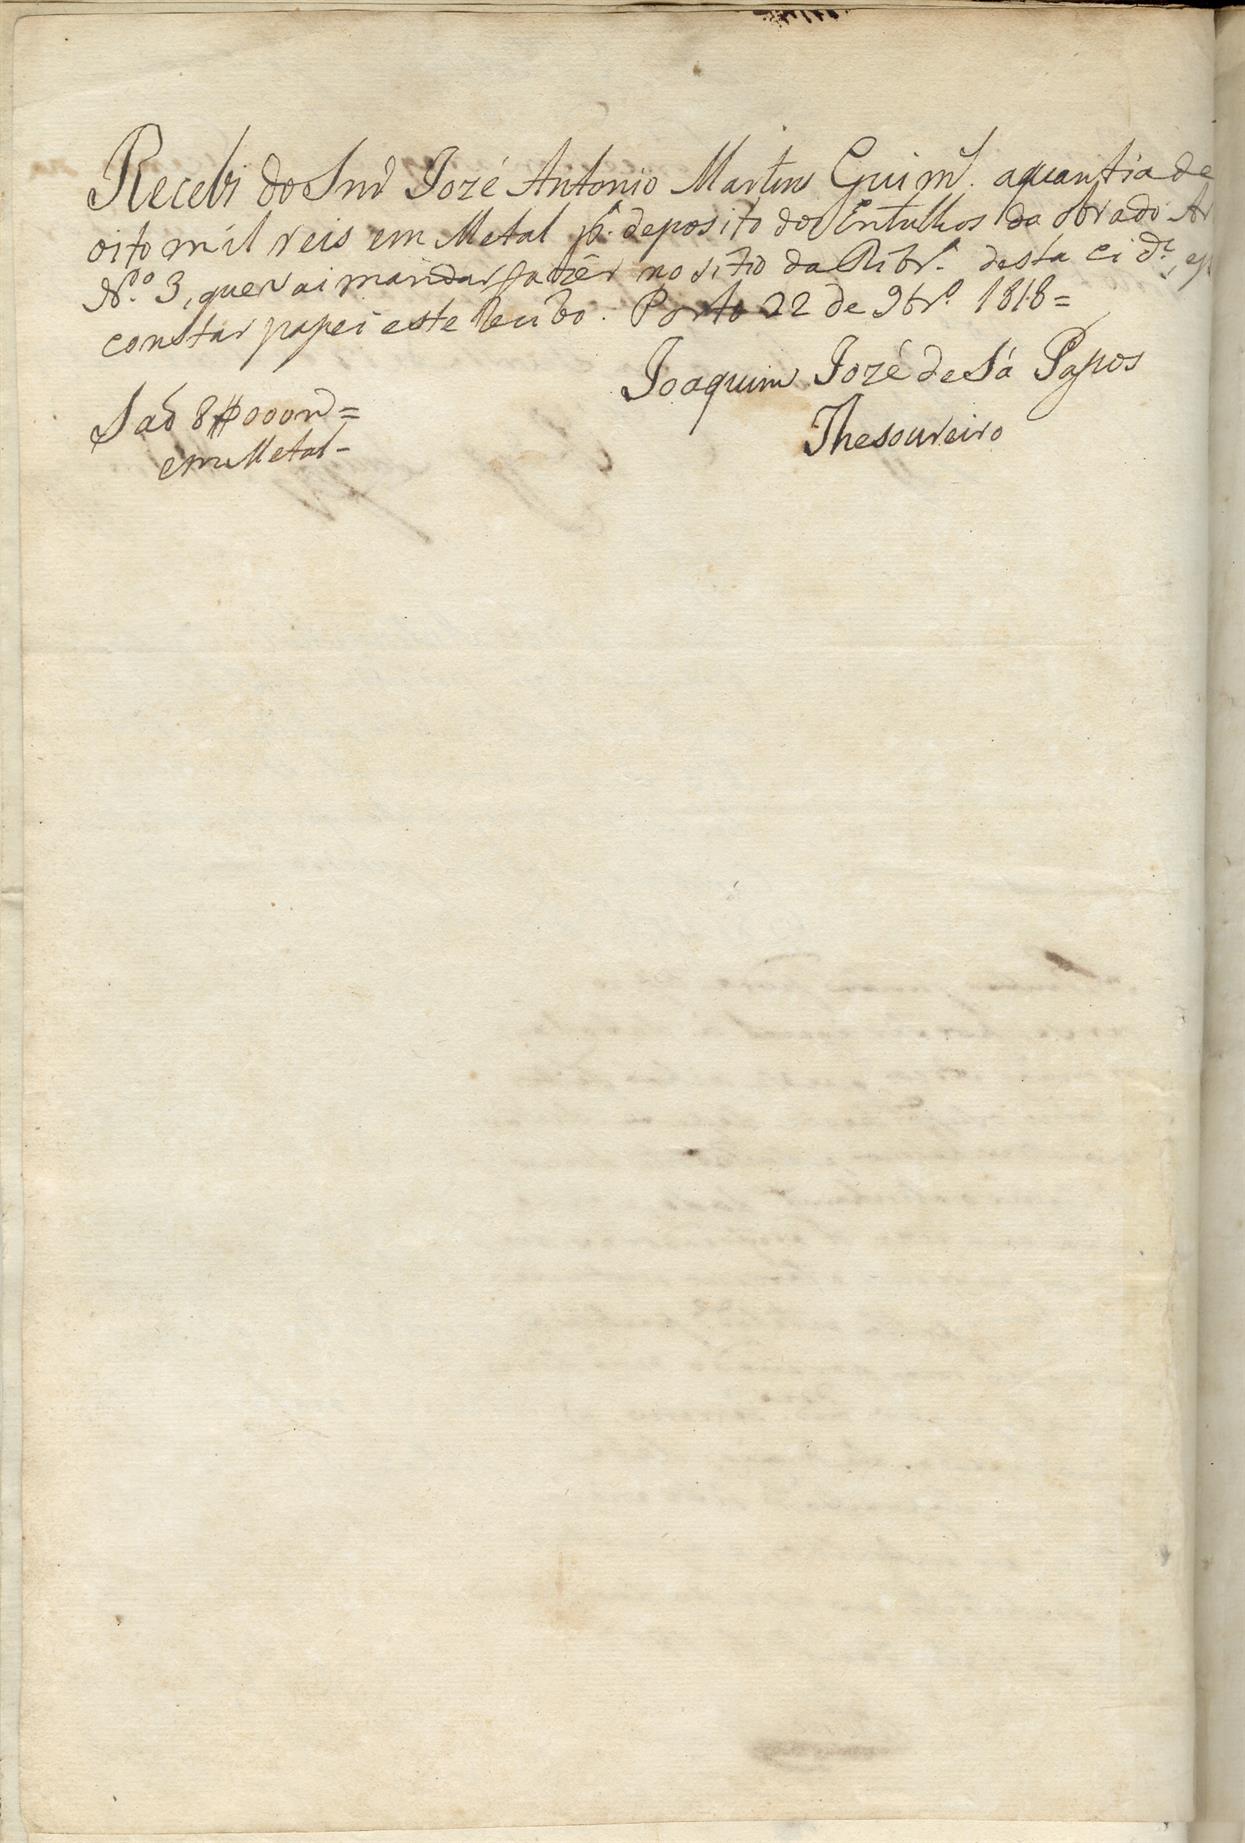 Recebi do Snr Jozé Antonio Martins Guim.es aquantia de
oito mil reis em Metal p.a deposito dos Entulhos da obra do Ar
N.o 3, que vai mandar fazêr no sitio da Ribr.a desta cid.e, e p
constar pasei este Recibo. Porto 22 de 9br.o 1818=
Joaquim Jozé de Sá Pasos
Thesoureiro
Saõ 8$000 rs=
em Metal-